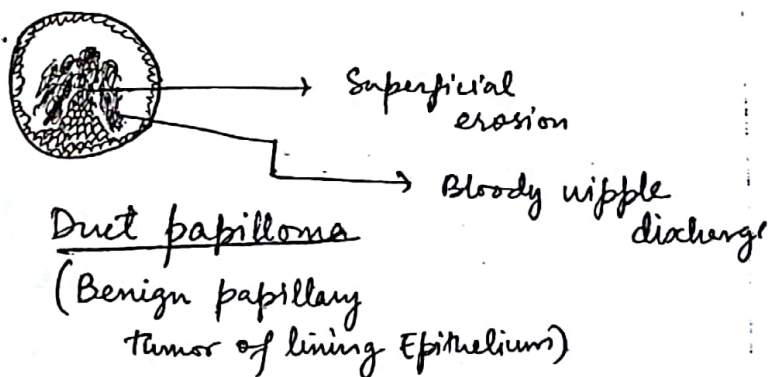 Superficial
erosion
Bloody nipple
discharge
Duct papilloma
(Benign papillary
tumor of lining Epithelium)